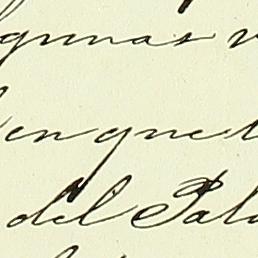 gunas v
en que t
del Pala